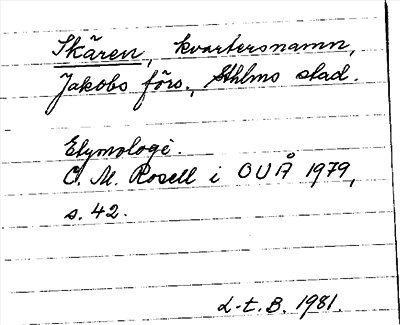 Skären, kvartersnamn,
Jakobs förs., Sthlms stad.
Etymologi.
C. M. Rosell i OUÅ 1979,
s. 42.
L-t. B. 1981.